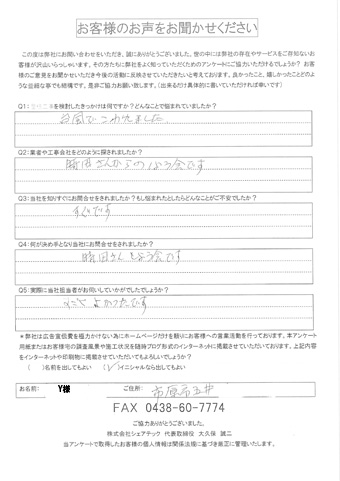 お客様のお声をお聞かせください
この度は弊社にお問い合わせをいただき、誠にありがとうございました。世の中には弊社の存在やサービスをご存知ないお
客様が沢山いらっしゃいます。その方たちに弊社をよく知っていただくためのアンケートにご協力いただけるでしょうか? お客
様のご意見をお聞かせいただき今後の活動に反映させていただきたいと考えております。良かったこと、嬉しかったことどのよ
うな些細な事でも結構です。是非ご協力お願い致します。(出来るだけ具体的に書いていただければ幸いです)
を検討したきっかけは何ですか?どんなことで悩まれていましたか?
台風でこわれました
Q2:業者や工事会社をどのように探されましたか?
さんからのしょう会です
Q3:当社を知りすぐにお問合せをされましたか?もし悩まれたとしたらどんなことがご不安でしたか?
すぐです
Q4:何が決め手となり当社にお問合せをされましたか?
さんしょう会です
Q5:実際に当社担当者がお伺いしていかがでしたでしょうか?
よかったです
*弊社は広告宣伝費を極力かけない為にホームページだけを頼りにお客様への営業活動を行っております。本アンケート
用紙またはお客様宅の調査風景や施工状況を随時ブログ形式のインターネットに掲載させていただいております。上記内容
をインターネットや印刷物に掲載させていただいてもよろしいでしょうか?
( )名前を出してもよい (✓)イニシャルなら出してもよい
お名前: Y様 ご住所: 市原市五井
FAX 0438-60-7774
ご協力ありがとうございました。
株式会社シェアテック 代表取締役 大久保 誠二
当アンケートで取得したお客様の個人情報は関係法規に基づき厳正に管理いたします。